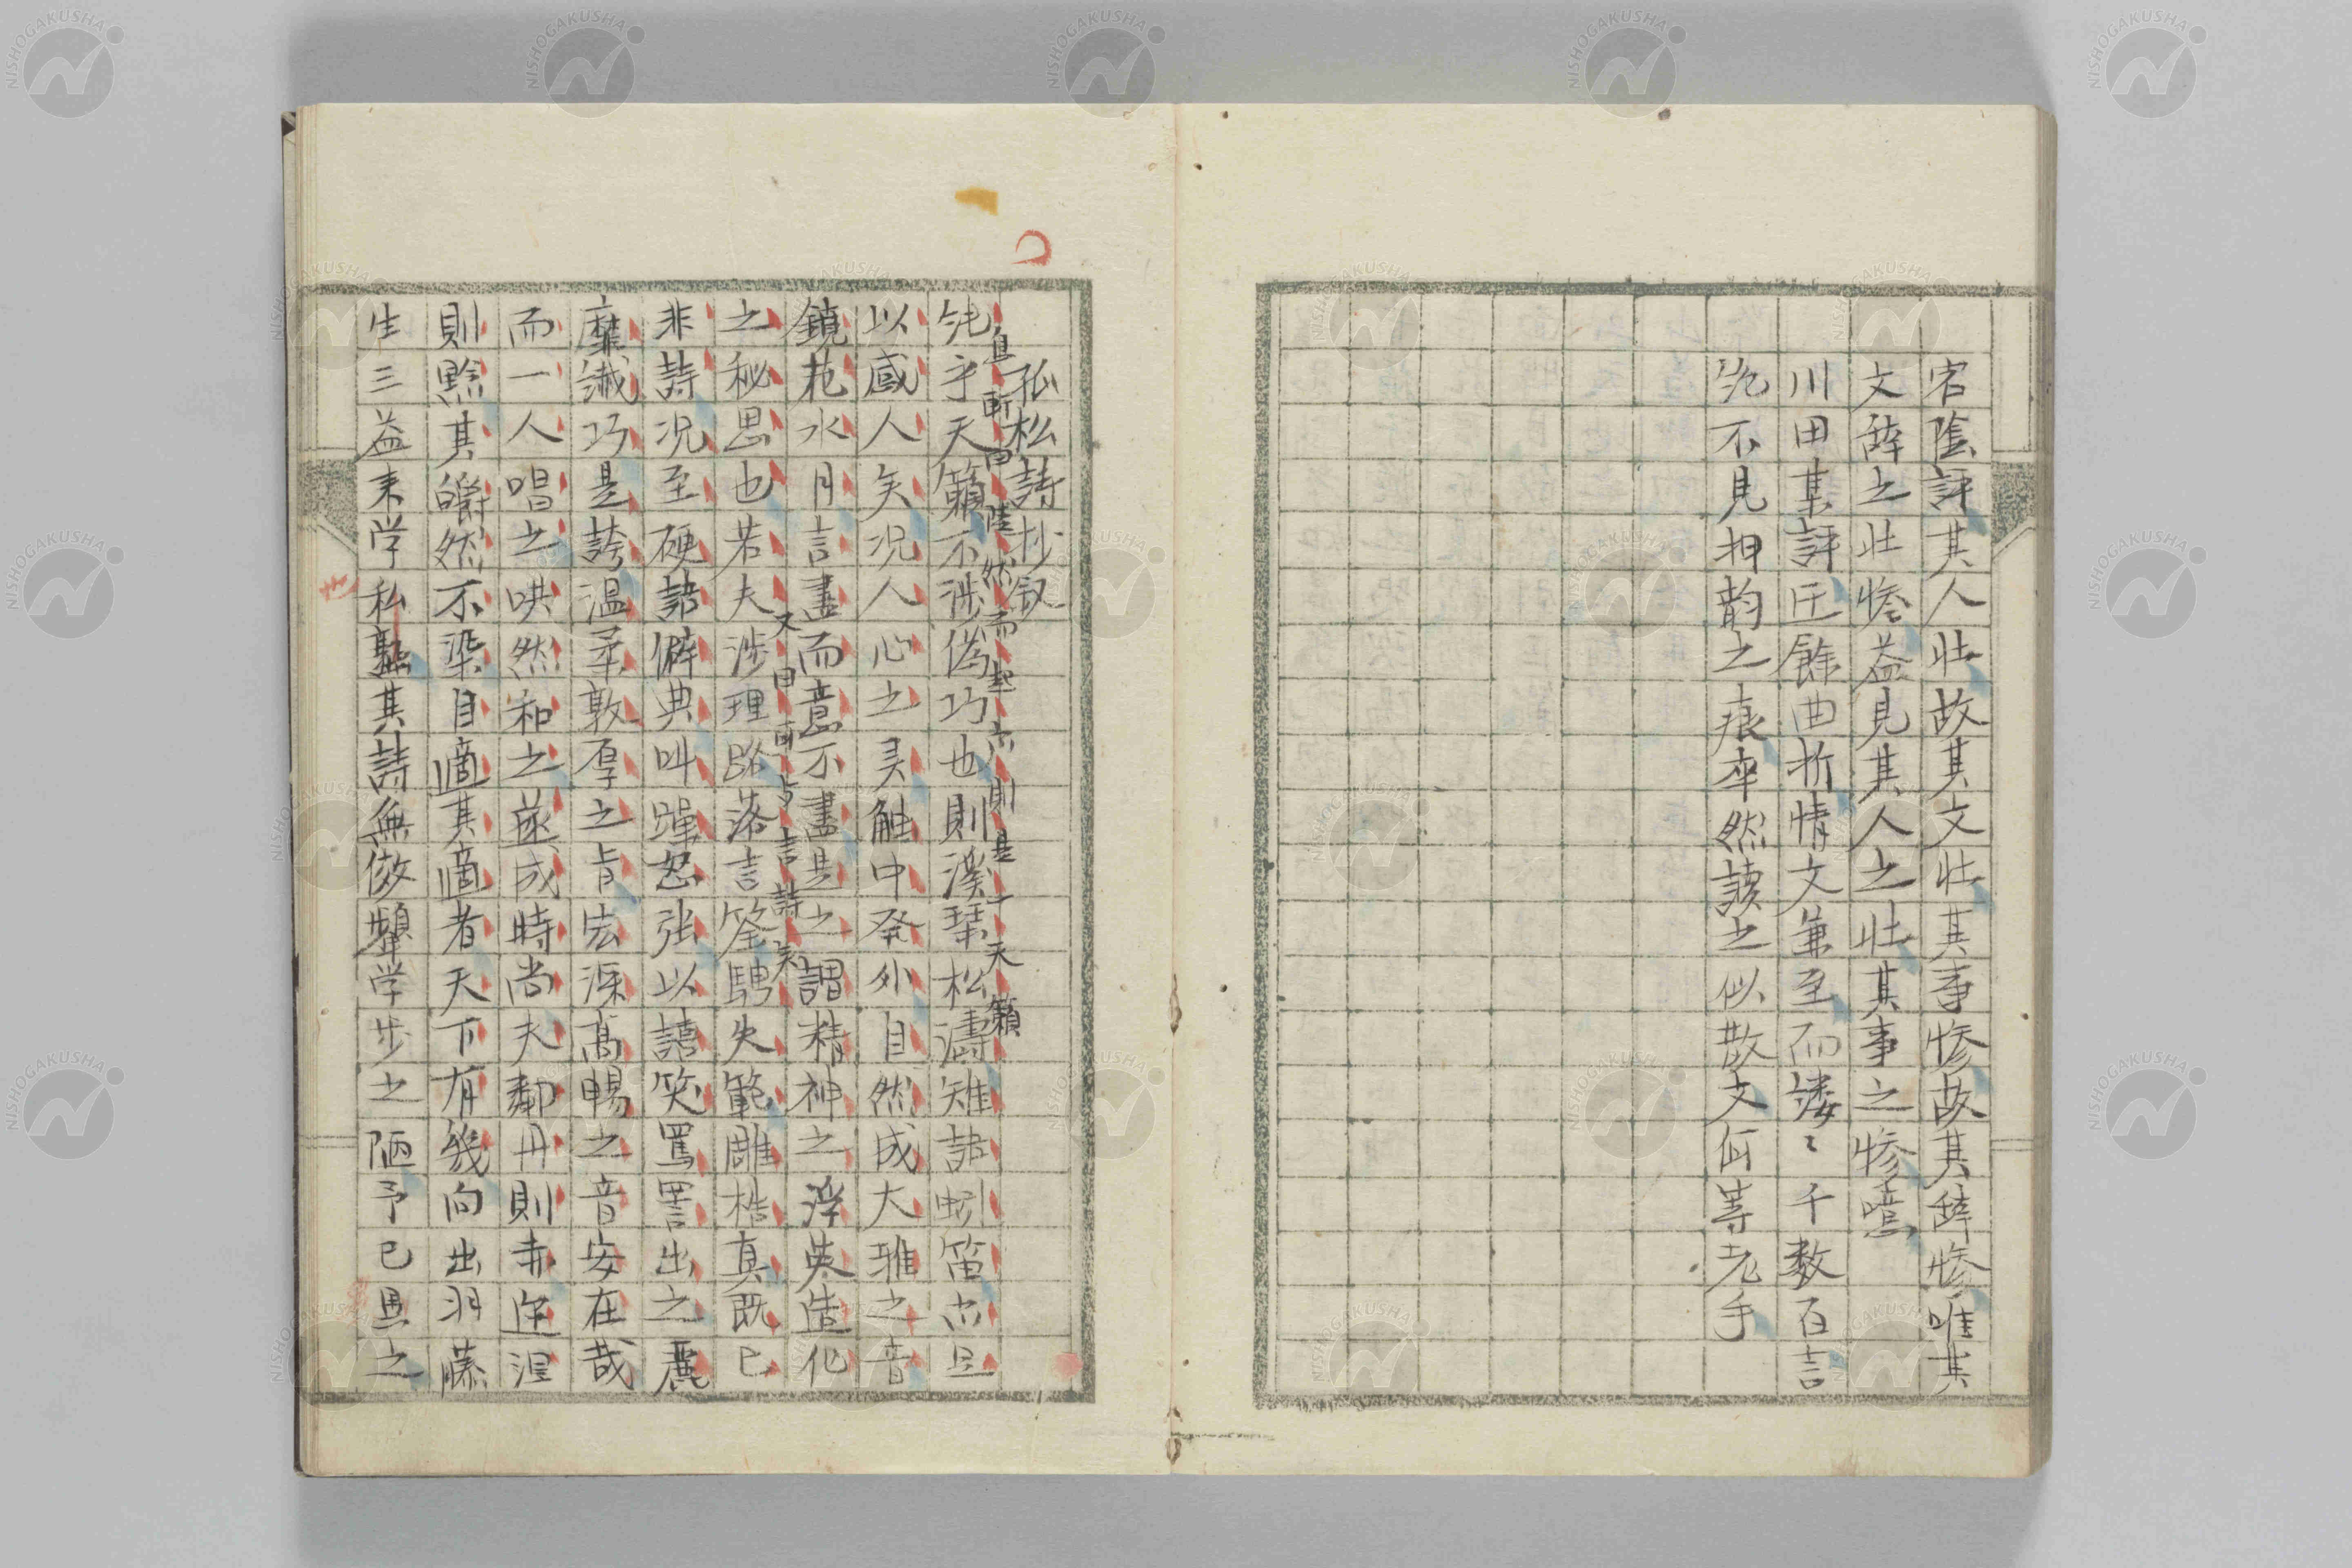 宕陰評其人壮故其文壮其事惨故其辞惨唯其
文辞之壮惨益見其人之壮其事之惨噫
川田某評圧餘曲折情文兼至而縷〻千数百言
絶不見押韵之痕卒然読之似散文何等老手
孤松詩抄叙
純乎天籟不渉偽巧也則溪琴松濤雉詰蚓笛亦足
自所向陡然而起亦則是一天籟
以感人矣况人心之灵触中発外自然成大雅之音
鏡花水月言盡而意不盡是之謂精神之浮英造化
又曰可与言詩矣
之秘思也若夫渉理路落言筌騁失範雕梏真既已
非詩况至硬語僻典叫躁怒張以譆笑罵詈出之麗
靡繊巧是誇温柔敦厚之旨宏深高暢之音安在哉
而一人唱之哄然和之遂成時尚夫鄰丹則赤近涅
則黔其皭然不染自適其適者天下有幾向出羽藤
生三益来学私塾其詩無傚顰学步之陋予已異之
NISHOGAKUSHA